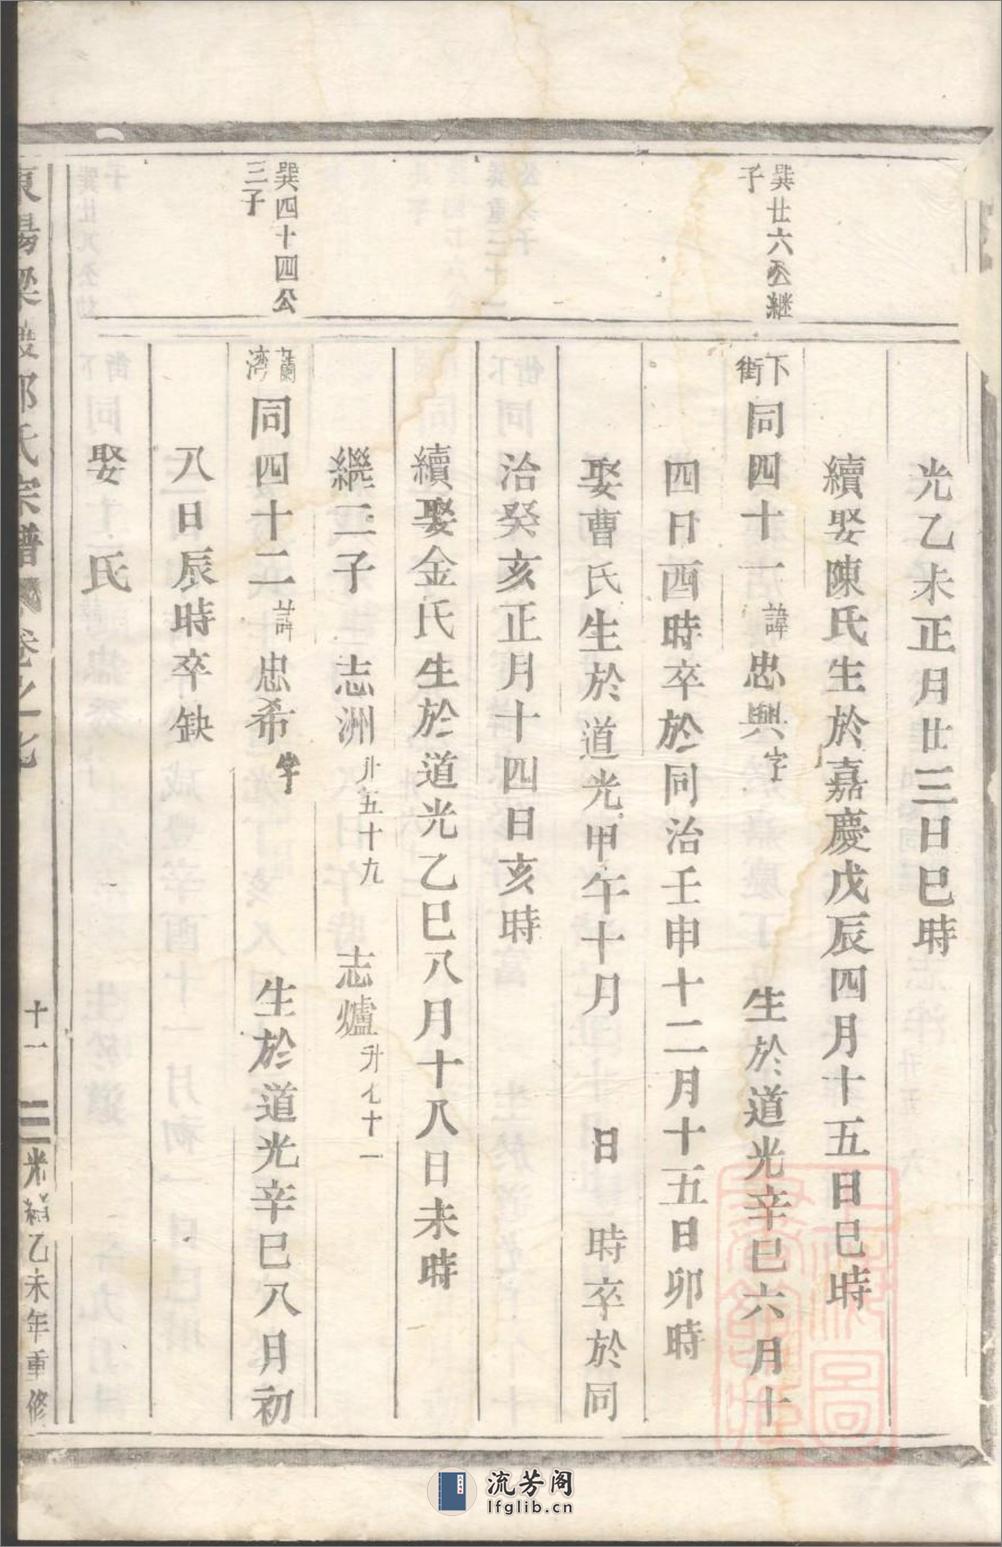 光乙未正月廿三日巳時
續娶陳氏生於嘉慶戊辰四月十五日巳時
巽廿六公繼
子
下街同四十一諱忠興字　生於道光辛巳六月十
四日酉時卒於同治壬申十二月十五日卯時
娶曹氏生於道光甲午十月　日　時卒於同
治癸亥正月十四日亥時
續娶金氏生於道光乙巳八月十八日未時
繼二子　志洲升五十九　志爐升七十一
巽四十四公
三子
蘭湾同四十二諱忠希字　生於道光辛巳八月初
八日辰時卒缺
娶　氏
東陽梁渡郭氏宗譜　卷之一　十一　光緒乙未年重修
流芳阁
lfglib.cn